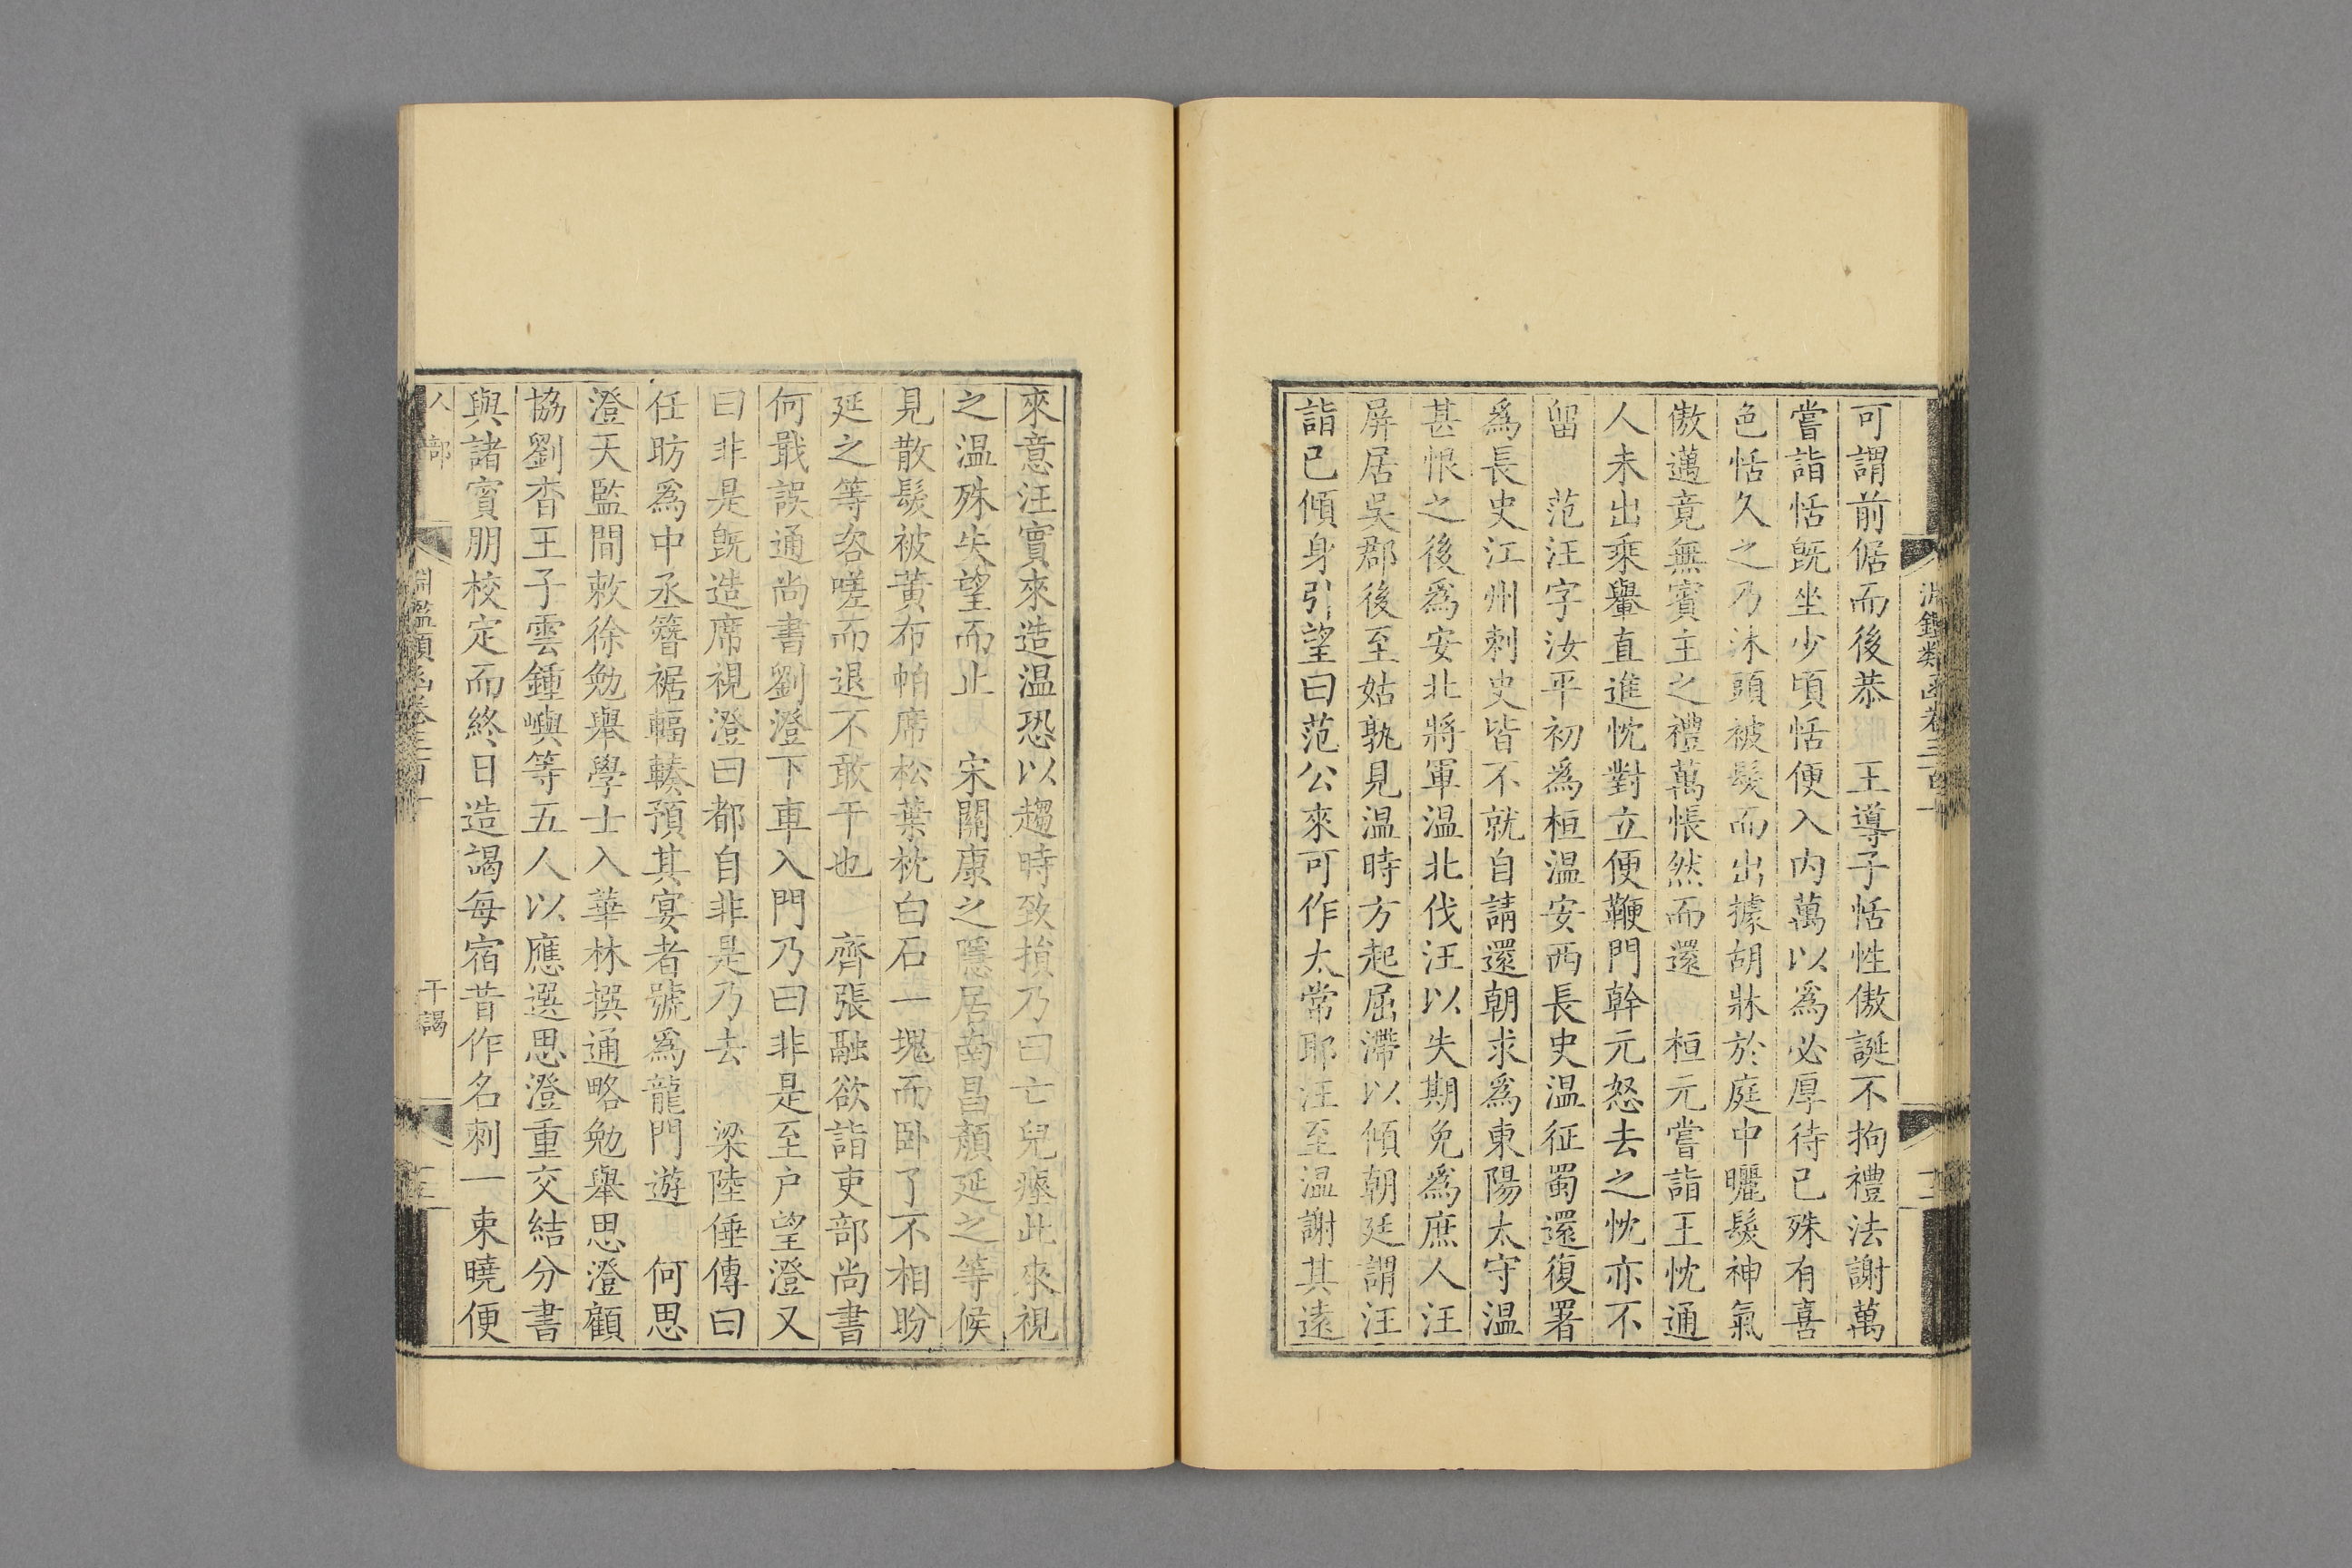 淵鑑類函卷三百十
十二
可謂前倨而後恭　王導子恬性傲誕不拘禮法謝萬
嘗詣恬旣坐少頃恬便入內萬以爲必厚待已殊有喜
色恬久之乃沐頭被髮而出據胡牀於庭中曬髮神氣
傲邁竟無賓主之禮萬悵然而還　桓元嘗詣王忱通
人未出乘轝直進忱對立便鞭門幹元怒去之忱亦不
留　范汪字汝平初爲桓溫安西長史温征蜀還復署
爲長史江州刺史皆不就自請還朝求爲東陽太守温
甚恨之後爲安北將軍温北伐汪以失期免爲庶人汪
屏居吳郡後至姑孰見温時方起屈滯以傾朝廷謂汪
詣已傾身引望曰范公來可作太常耶汪至温謝其遠
來意汪實來造温恐以趨時致損乃曰亡兒瘞此來視
之温殊失望而止　宋關康之隱居南昌顏延之等候
見散髮被黃布帕席松葉枕白石一塊而卧了不相盼
延之等咨嗟而退不敢干也　齊張融欲詣吏部尚書
何戢誤通尚書劉澄下車入門乃曰非是至戶望澄又
曰非是旣造席視澄曰都自非是乃去　梁陸倕傳曰
任昉爲中丞簪裾輻輳預其宴者號爲龍門遊　何思
澄天監間敕徐勉舉學士入華林撰通略勉舉思澄顧
協劉杳王子雲鍾嶼等五人以應選思澄重交結分書
與諸賓朋校定而終日造謁每宿昔作名刺一束曉便
人部　淵鑑類函卷三百十　干謁